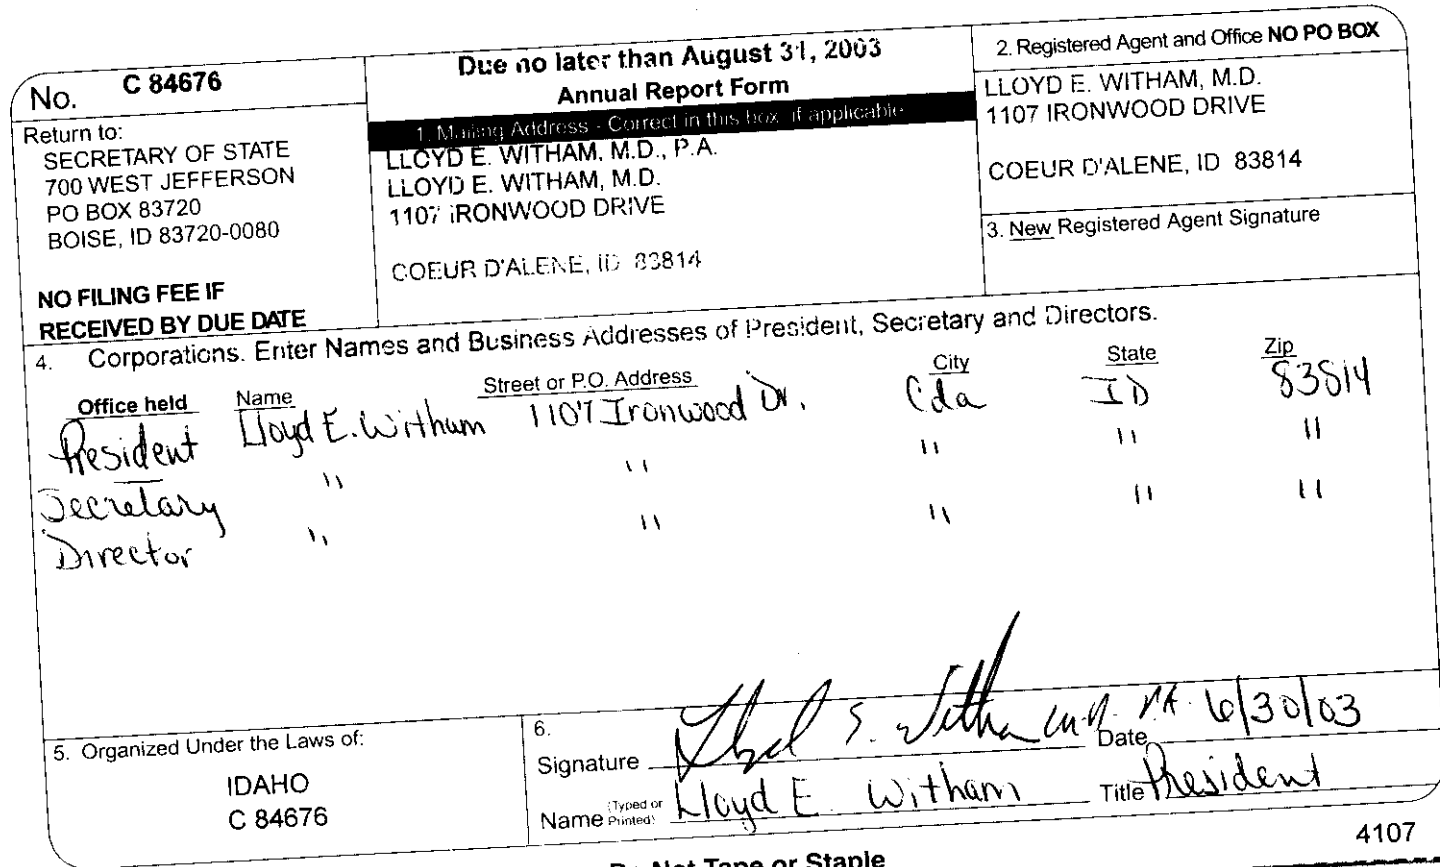 No. C 84676
Return to:
SECRETARY OF STATE
700 WEST JEFFERSON
PO BOX 83720
BOISE, ID 83720-0080
NO FILING FEE IF
RECEIVED BY DUE DATE
Due no later than August 31, 2003
Annual Report Form
1. Mailing Address - Correct in this box if applicable
LLOYD E. WITHAM, M.D., P.A.
LLOYD E. WITHAM, M.D.
1107 IRONWOOD DRIVE
COEUR D'ALENE, ID 83814
2. Registered Agent and Office NO PO BOX
LLOYD E. WITHAM, M.D.
1107 IRONWOOD DRIVE
COEUR D'ALENE, ID 83814
3. New Registered Agent Signature
4. Corporations. Enter Names and Business Addresses of President, Secretary and Directors.
Office held Name Street or P.O. Address City State Zip
President Lloyd E. Witham 1107 Ironwood Dr. Cda ID 83814
Secretary " " " " "
Director " " " " "
5. Organized Under the Laws of:
IDAHO
C 84676
6.
Signature Date 6/30/03
Name (Typed or Printed) Lloyd E. Witham Title President
4107
Do Not Tape or Staple